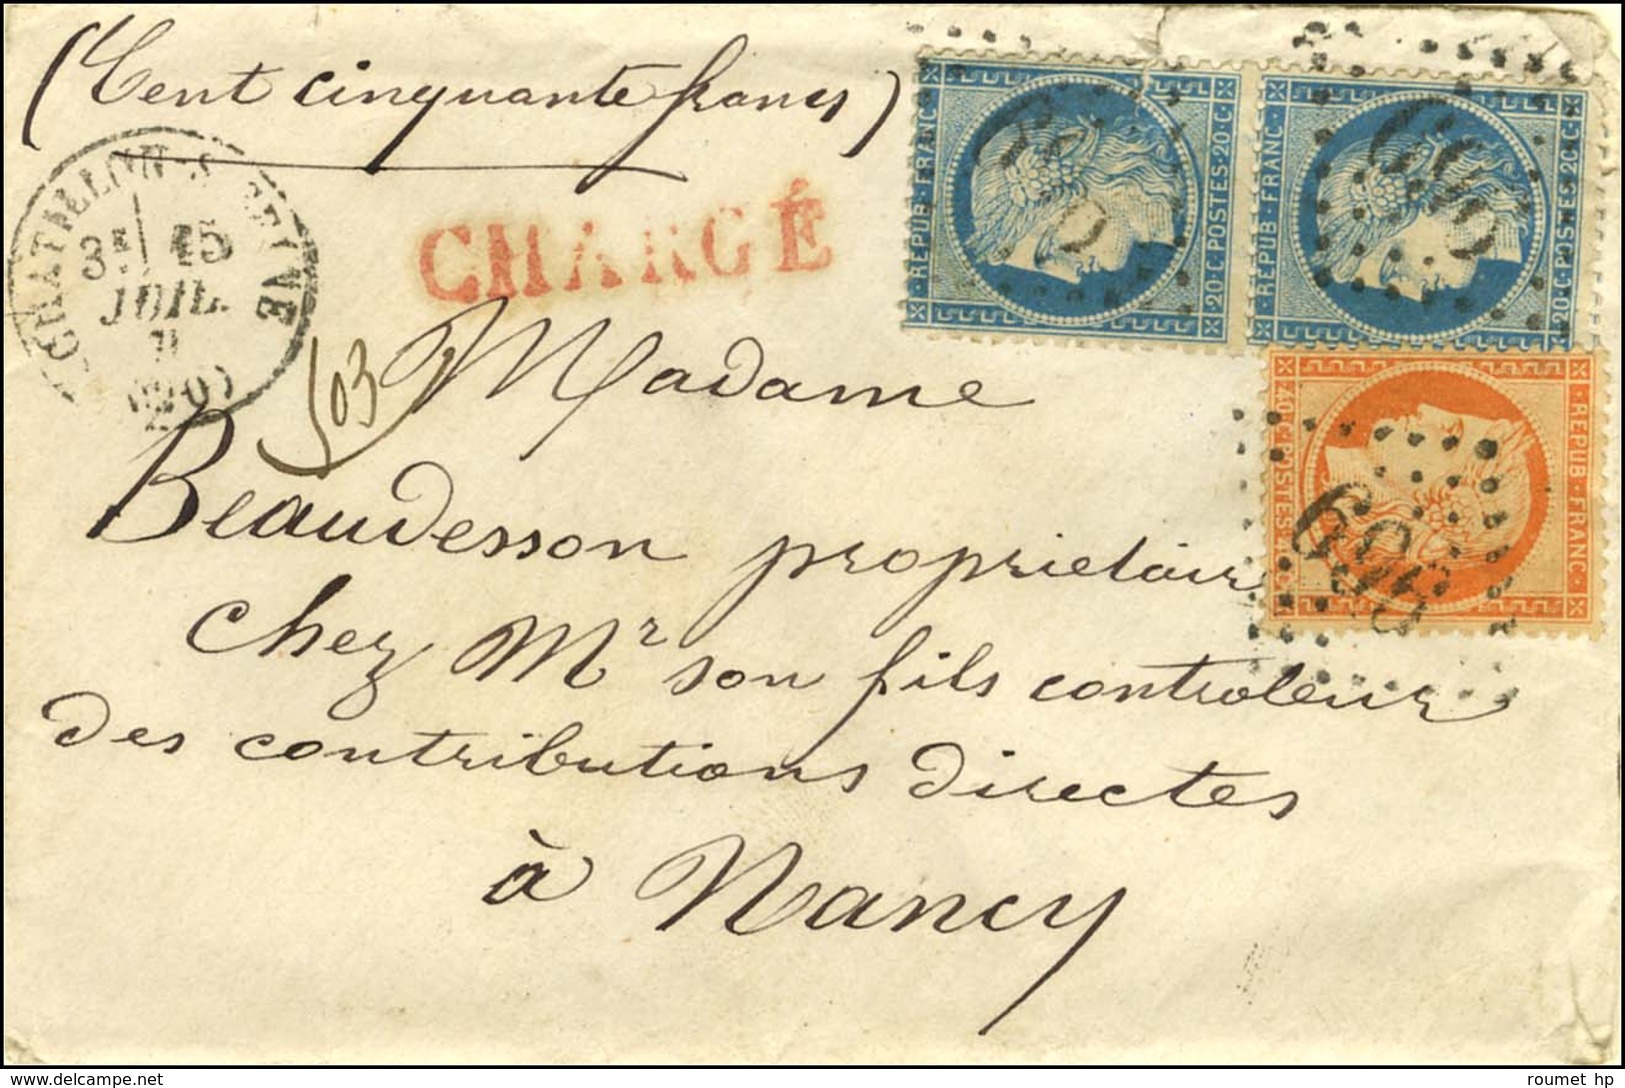 (Cent cinquante francs)
CHATILLON-S-SEINE
3E 15
JUIL.
71
(20)
CHARGÉ
REPUB·FRANC
20·C·POSTES·20·C·
REPUB·FRANC·
20·C·POSTES·20·C·
REPUB·FRANC·
40·C·POSTES
503
Madame
Beaudesson proprietair
chez Mr son fils controleur
des contributions directes
à Nancy
roumet hp